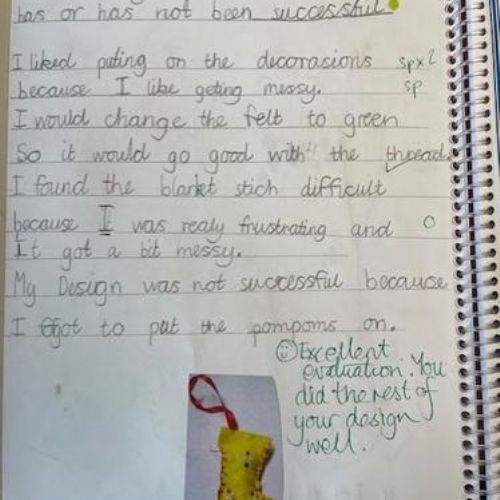 has or has not been successful.
I liked puting on the decorasions spx2
because I like geting messy. sp
I would change the felt to green
So it would go good with the thread.
I found the blanket stich difficult
because I was realy frustrating and O
it got a bit messy.
My Design was not successful because
I got to put the pompoms on.
Excellent
evaluation. You
did the rest of
your design
well.